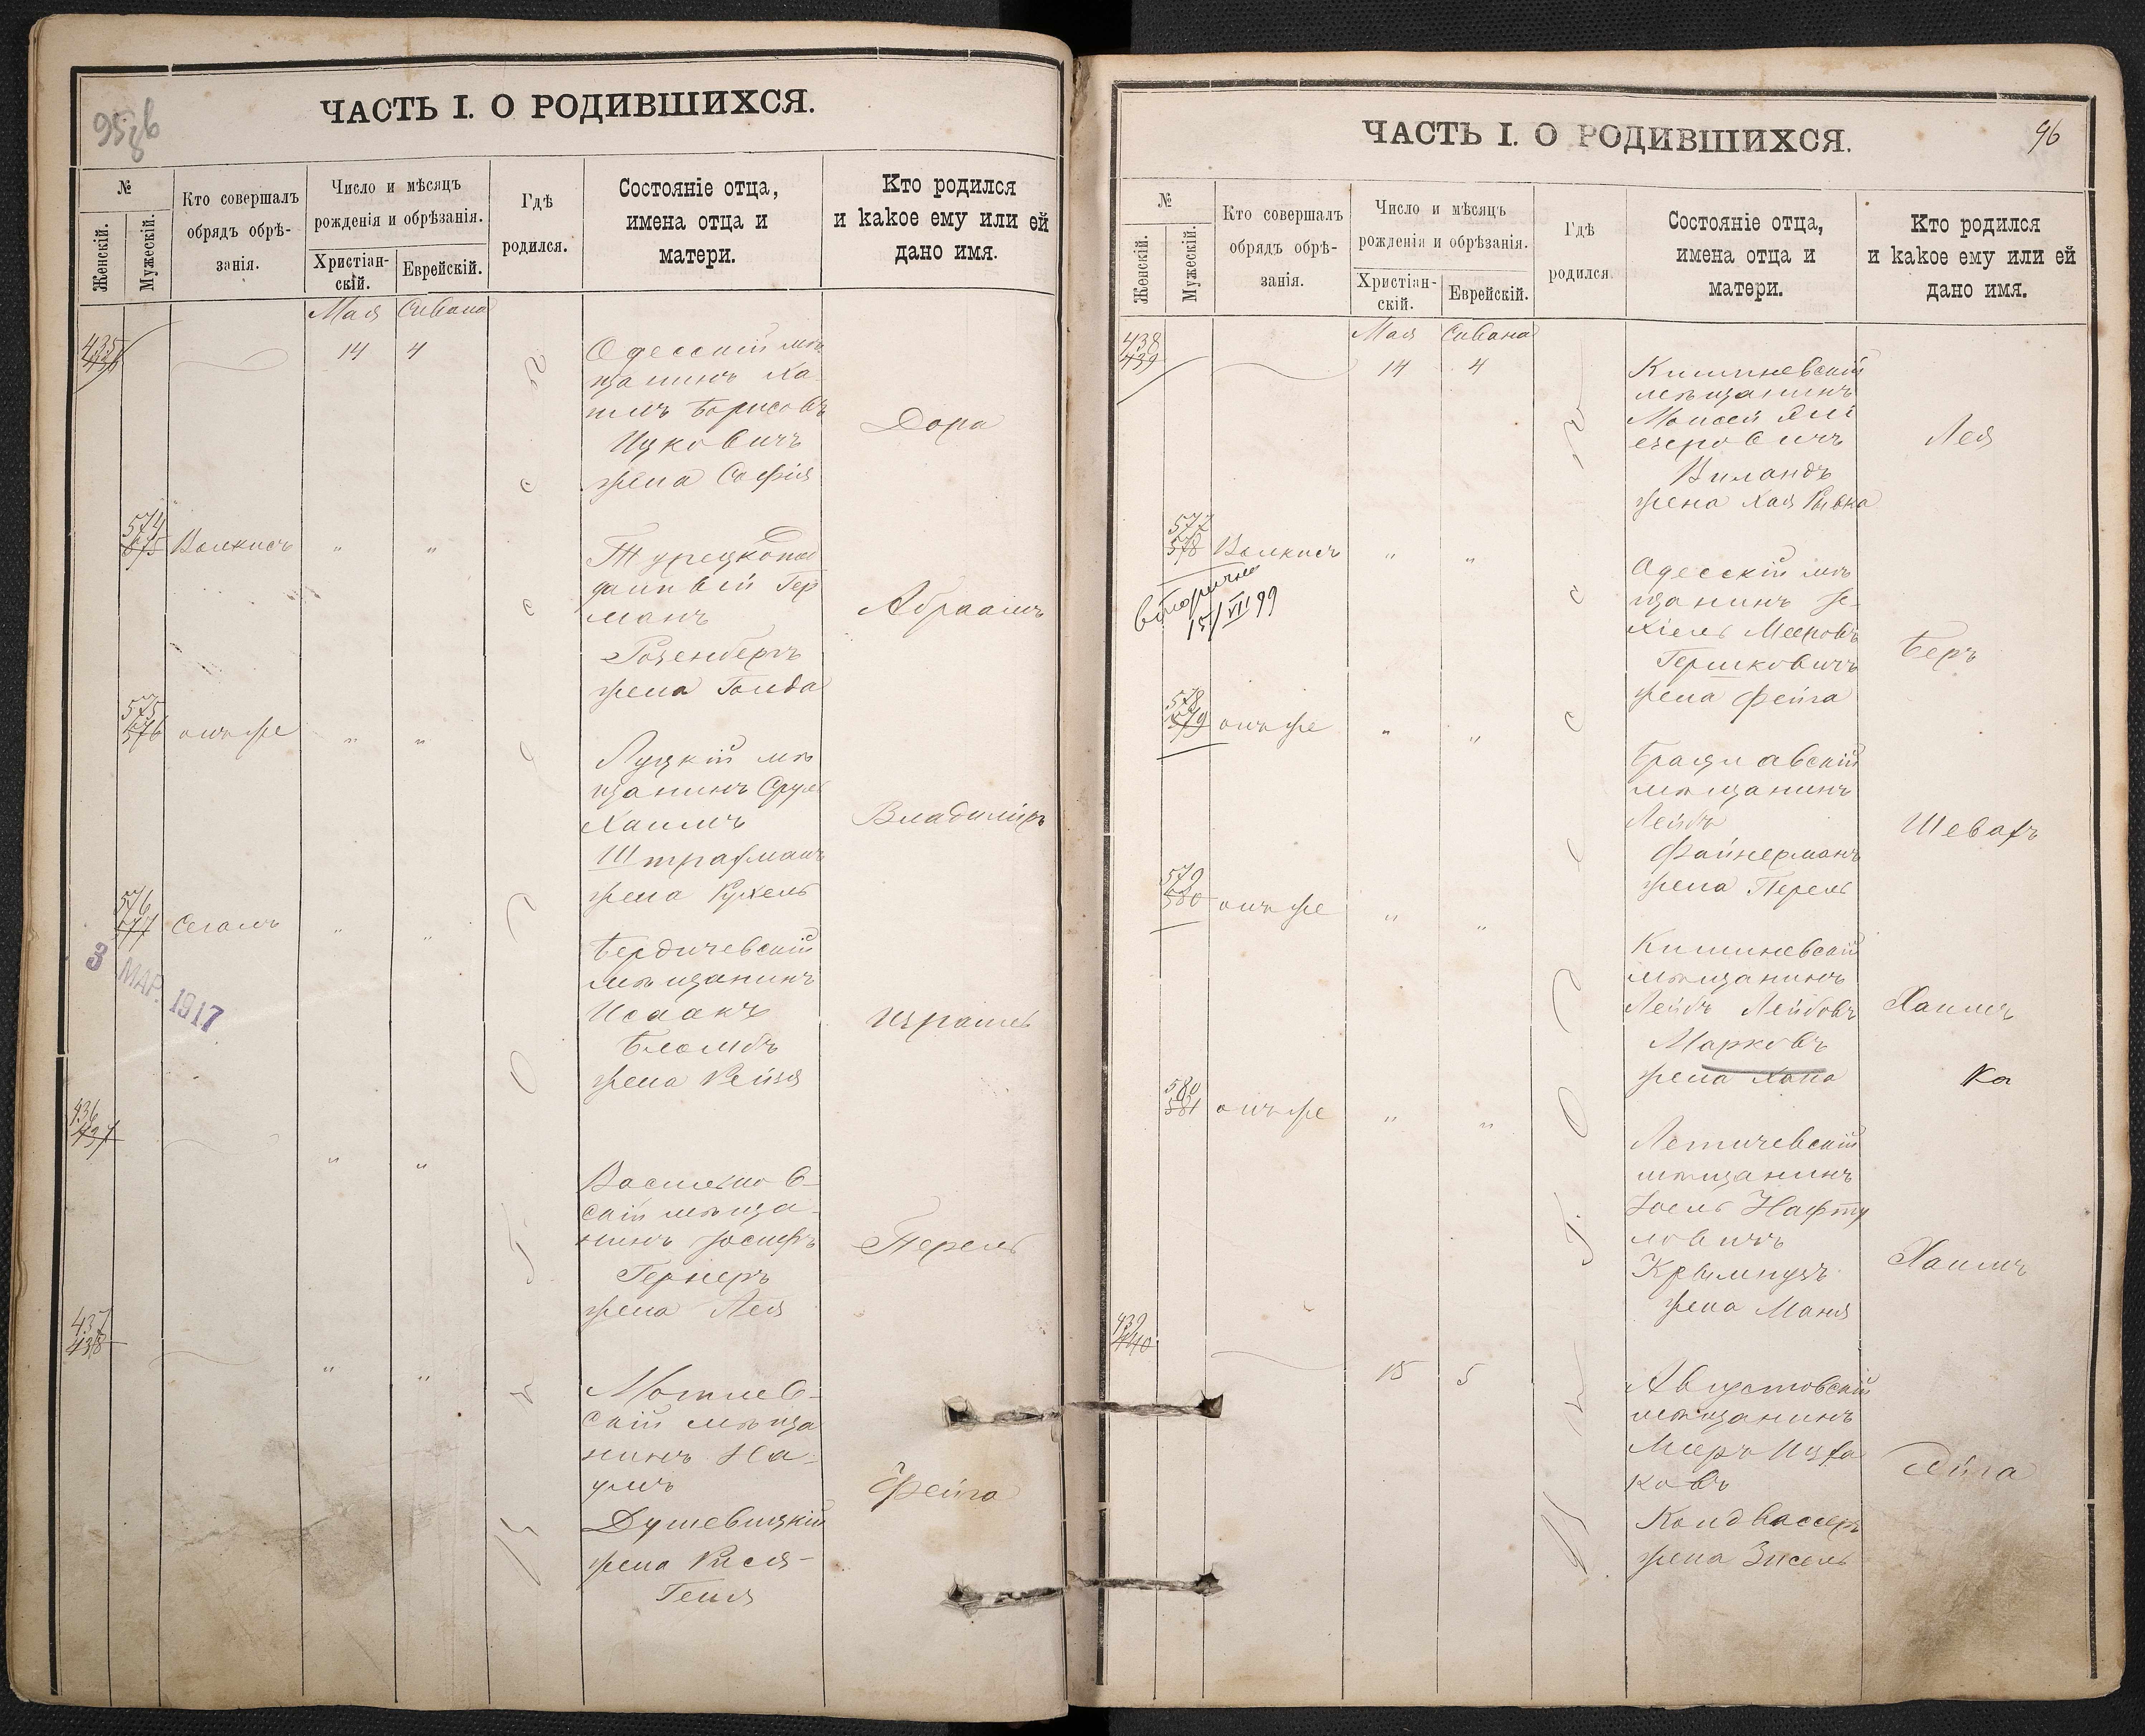 95 об
ЧАСТЬ I. О РОДИВШИХСЯ.
№
Женскій.
Мужескій.
Кто совершалъ
обрядъ обрѣ-
занія.
Число и мѣсяцъ
рожденія и обрѣзанія.
Христіан-
скій.
Еврейскій.
Гдѣ
родился.
Состояніе отца,
имена отца и
матери.
Кто родился
и какое ему или ей
дано имя.
Мая Сивана
435
436
14 4
Одесскій мѣ
щанинъ Ха
имъ Борисовъ
Ицковичъ
жена Софія
Дора
574
575
Валкисъ " "
Турецкопод
данный Гер
манъ
Розенбергъ
жена Голда
Абраамъ
575
576
онъ же " "
Луцкій мѣ
щанинъ Сруль
Хаимъ
Штрафманъ
жена Рухель
Владиміръ
576
577
Сегалъ " "
3 МАР. 1917
Бердичевскій
мѣщанинъ
Исаакъ
жена Рейзя
Израиль
436
437
" "
скій мѣща
нинъ Іосифъ
Гернеръ
жена Лея
Перель
437
438
" "
скій мѣща
нинъ На
умъ
Душевицкій
жена Рися-
Геня
Фейга
96
ЧАСТЬ I. О РОДИВШИХСЯ.
№
Женскій.
Мужескій.
Кто совершалъ
обрядъ обрѣ-
занія.
Число и мѣсяцъ
рожденія и обрѣзанія.
Христіан-
скій.
Еврейскій.
Гдѣ
родился.
Состояніе отца,
имена отца и
матери.
Кто родился
и какое ему или ей
дано имя.
Мая Сивана
438
439
14 4
Кишиневскій
мѣщанинъ
Моисей Эли
езеровичъ
Виландъ
жена Хая Рывка
Лея
577
578
Валкисъ " "
вторично
15/VII 99
Одесскій мѣ
щанинъ Іе-
хіель Мееровъ
Гершковичъ
жена Фейга
Беръ
578
579
онъ же " "
Брацлавскій
мѣщанинъ
Лейбъ
Файнерманъ
жена Перель
Шевахъ
579
580
онъ же " "
Кишиневскій
мѣщанинъ
Лейбъ Лейбовъ
Марковъ
жена Хана
Хаимъ
Ка
580
581
онъ же " "
Летичевскій
мѣщанинъ
Іоель Нафту
ловичъ
жена Маня
Хаимъ
439
440
15 5
Августовскій
мѣщанинъ
Мееръ Ицха
ковъ
Калдвассеръ
жена Зисель